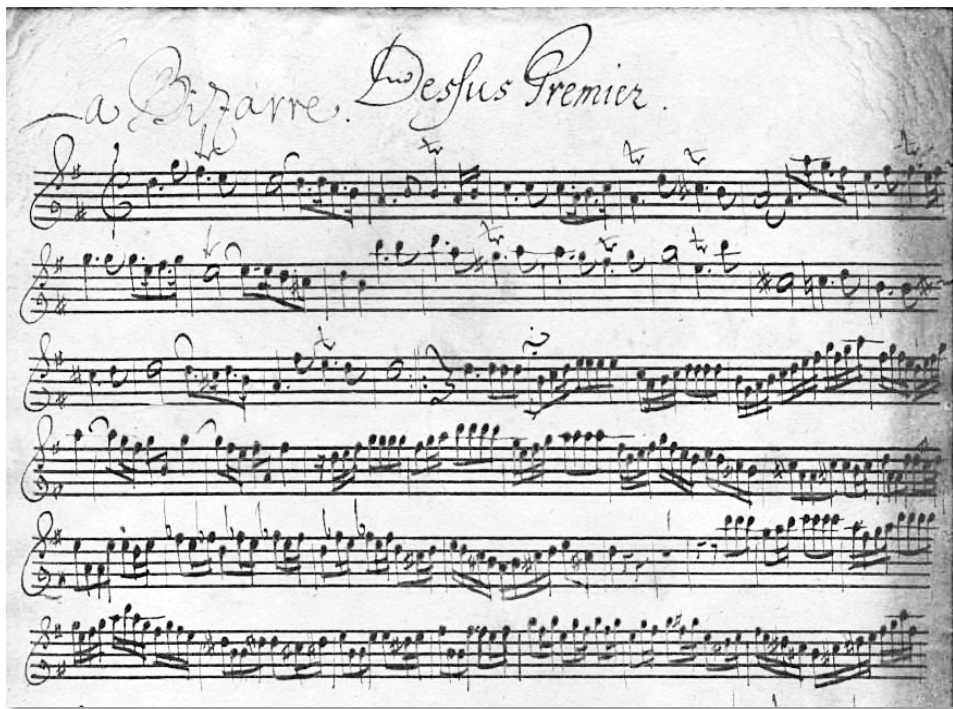 La Bizarre. Dessus Premier.